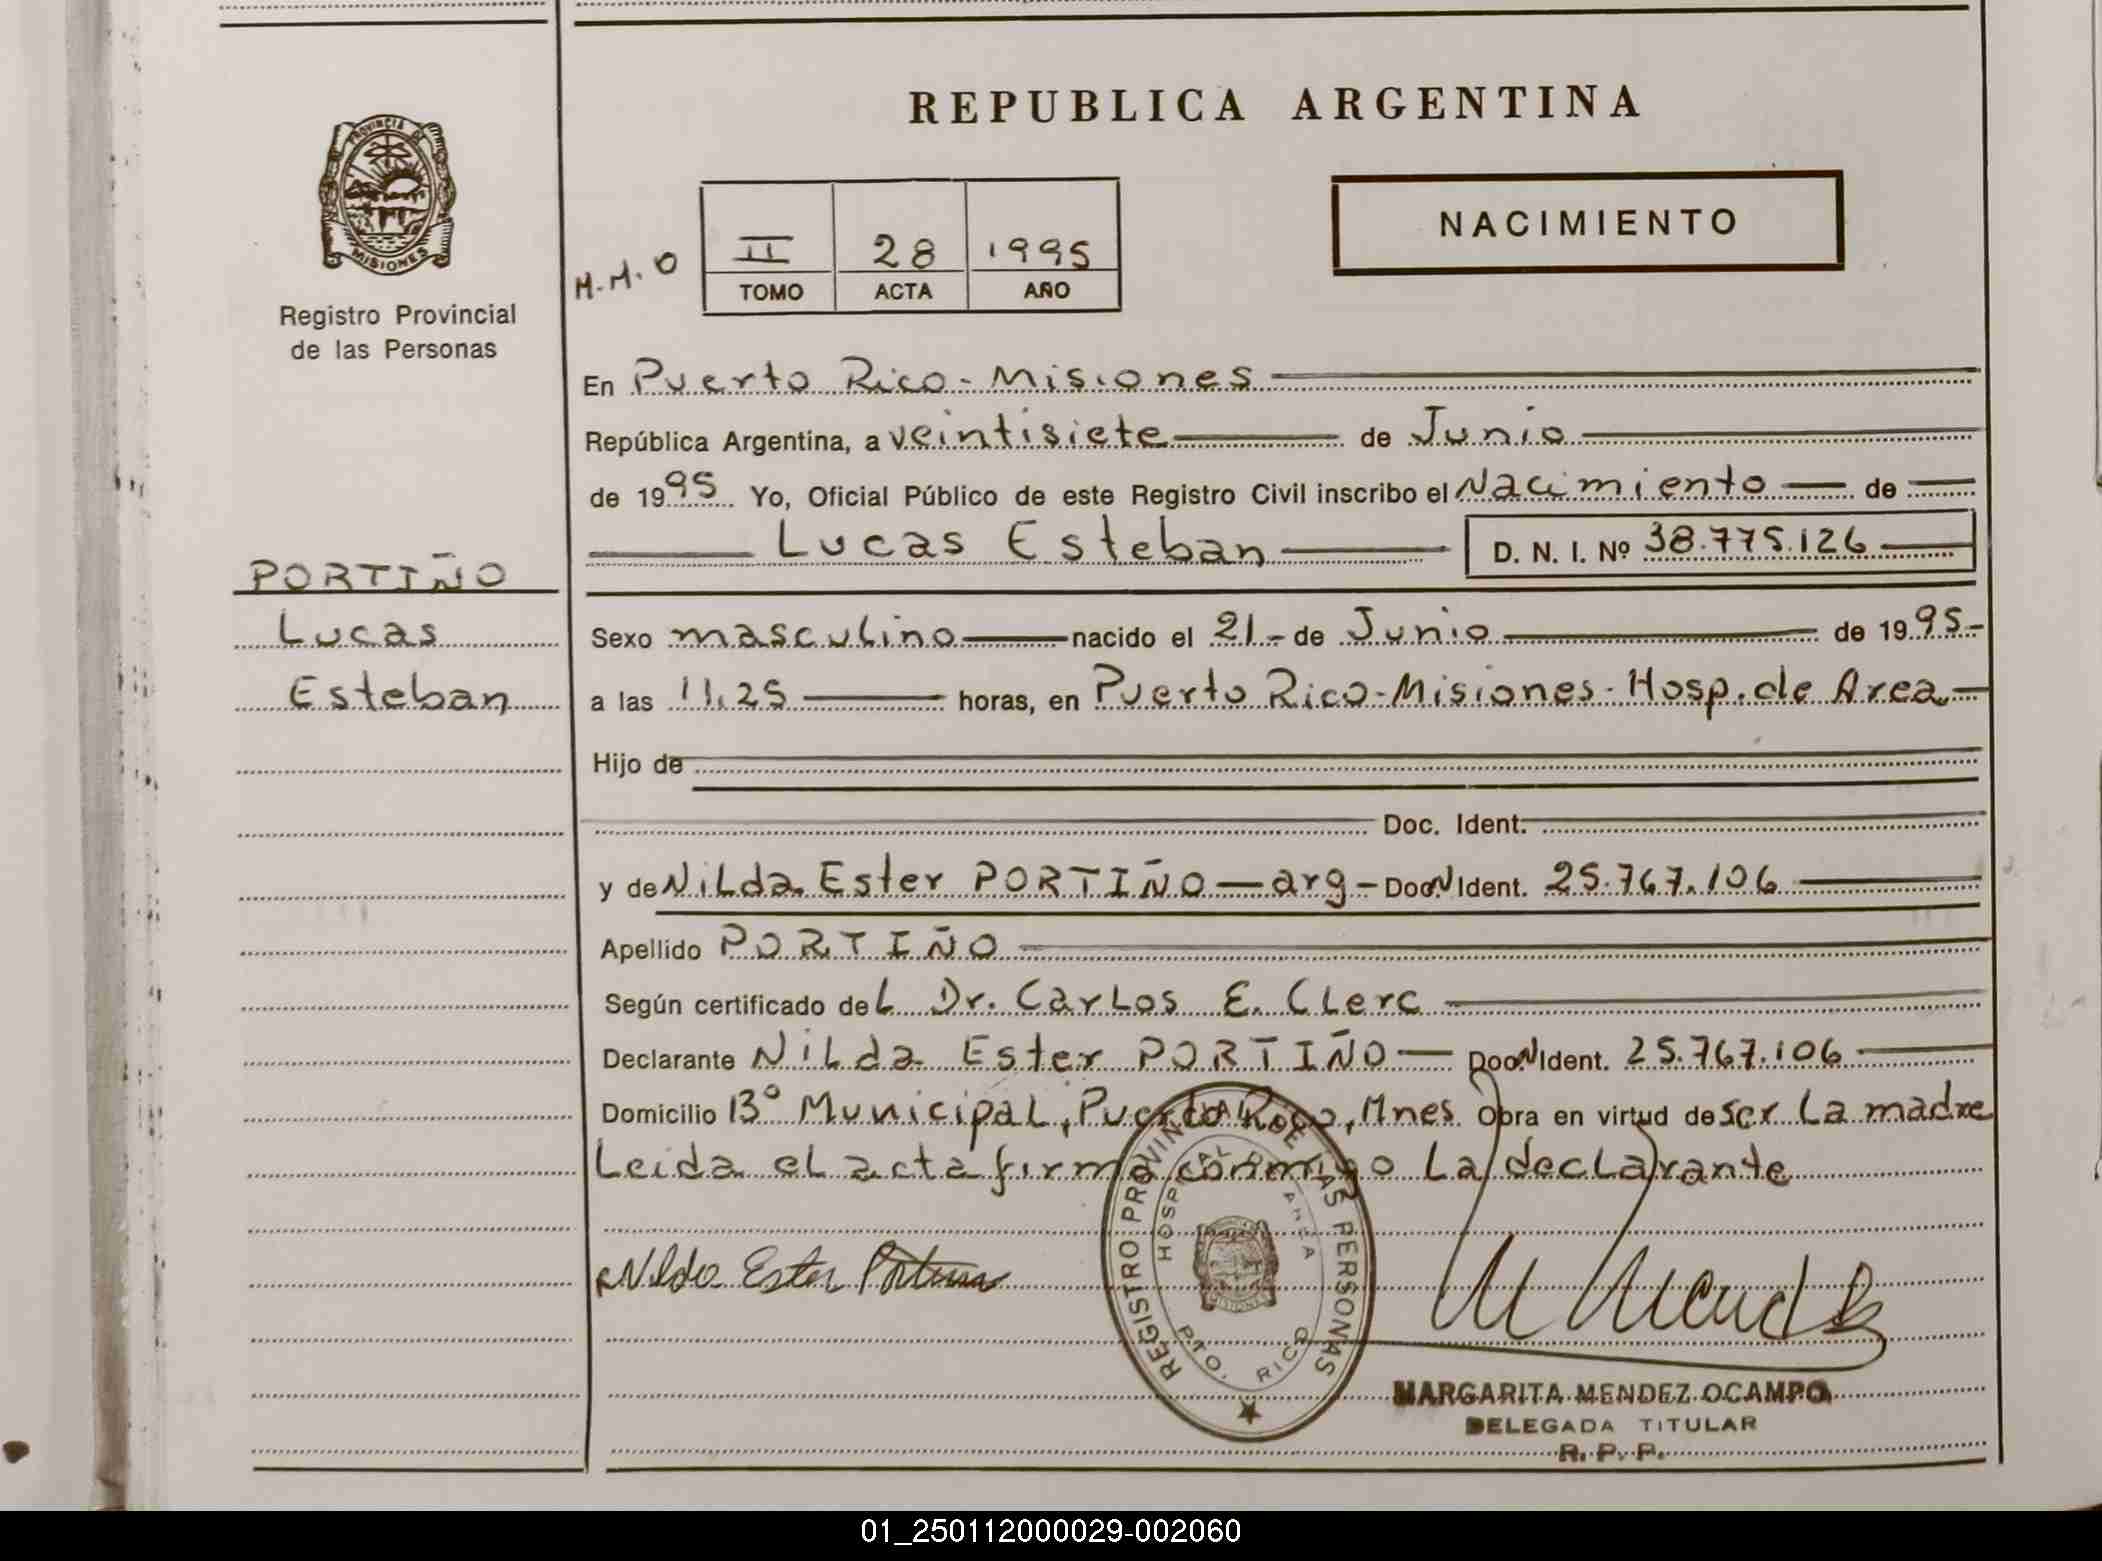 REPUBLICA ARGENTINA
PROVINCIA DE MISIONES
Registro Provincial
de las Personas
NACIMIENTO
M.M.O
II 28 1995
TOMO ACTA AÑO
En Puerto Rico - Misiones
República Argentina, a veintisiete de Junio
de 1995 Yo, Oficial Público de este Registro Civil inscribo el Nacimiento de
Lucas Esteban D. N. I. Nº 38.775.126
PORTIÑO
Lucas
Esteban
Sexo masculino nacido el 21 - de Junio de 1995 -
a las 11.25 horas, en Puerto Rico - Misiones - Hosp. de Area
Hijo de
Doc. Ident.
y de Nilda Ester PORTIÑO - arg - Doc. N Ident. 25.767.106
Apellido PORTIÑO
Según certificado del Dr. Carlos E. Clerc
Declarante Nilda Ester PORTIÑO Doc. N Ident. 25.767.106
Domicilio 13º Municipal, Puerto Rico, Mnes. Obra en virtud de ser la madre
Leida el acta firma conmigo la declarante
Nilda Ester
REGISTRO PROVINCIAL DE LAS PERSONAS
HOSPITAL DE AREA
PTO. RICO
M Mendez
MARGARITA MENDEZ OCAMPO
DELEGADA TITULAR
R. P. P.
01_250112000029-002060